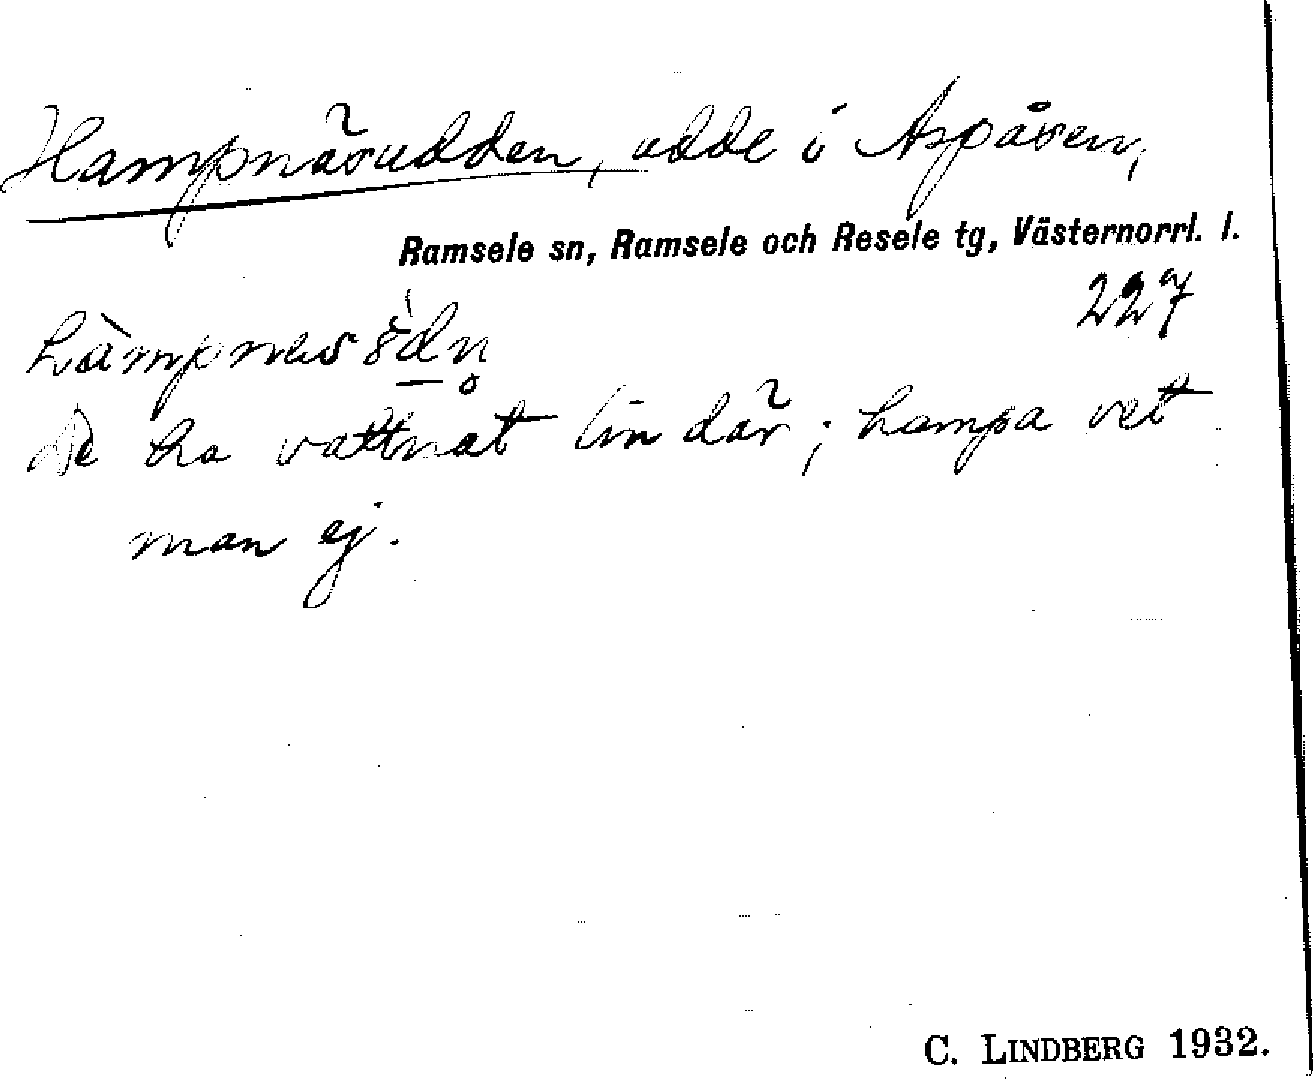 Hampnäsudden, udde i Aspåsen,
Ramsele sn, Ramsele och Resele tg, Västernorrl. l.
227
De ha vattnat lin där; hampa vet
man ej.
C. LINDBERG 1932.